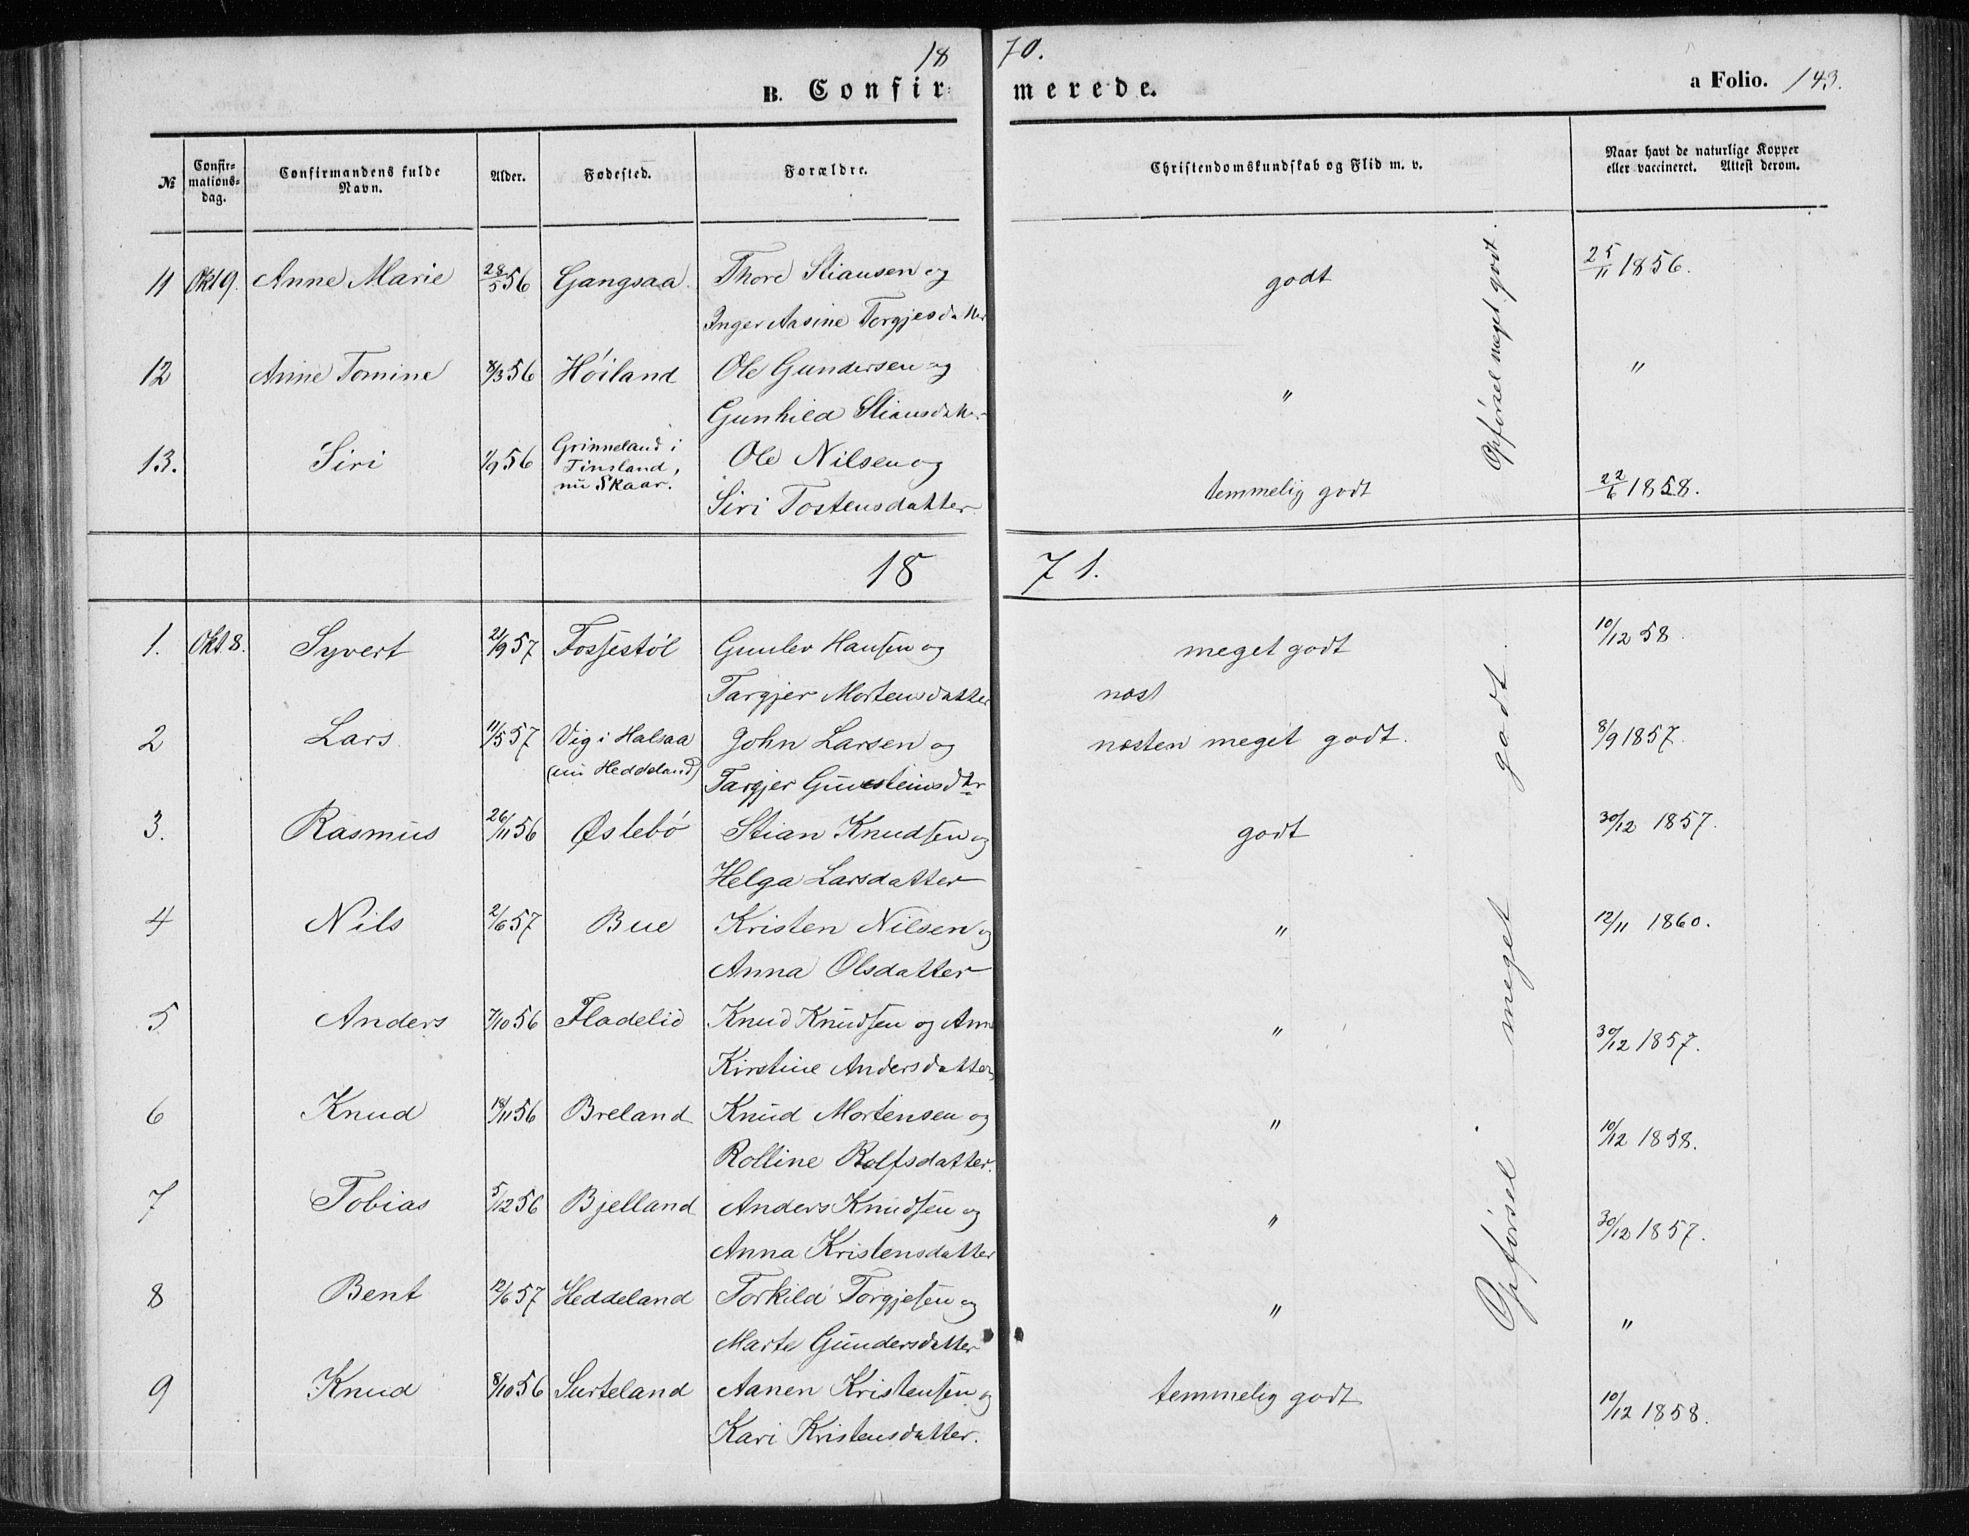 18 70.
B. Confirmerede. a Folio. 143.
№ Confirmationsdag. Confirmandens fulde Navn. Alder. Fødested. Forældre. Christendomskundskab og Flid m. v. Naar havt de naturlige Kopper eller vaccineret. Attest derom.
11 Okt 9. Anne Marie 28/5 56 Gangsaa. Thore Stiansen og godt 25/11 1856.
Inger Aasine Torgjesdatter
12 Anne Tomine 8/3 56 Höiland Ole Gundersen og " "
Gunhild Stiansdatter
13. Siri 1/9 56 Grinneland i Ole Nilsen og
Finsland,
nu Skaar. Siri Tostensdatter temmelig godt 22/6 1858.
Opförsel meget godt.
18 71.
1. Okt. 8. Syvert 21/9 57 Fossestøl Gunlev Hansen og meget godt 10/12 58.
Targjer Mortensdatter næst
2 Lars 11/5 57 Vig i Halsaa John Larsen og næsten meget godt. 8/9 1857.
(nu Heddeland) Targjer Gunsteinsdtr
3. Rasmus 26/11 56 Østebö Stian Knudsen og godt 30/12 1857.
Helga Larsdatter
4 Nils 2/6 57 Bue Kristen Nilsen og " 12/11 1860.
Anna Olsdatter
5 Anders 7/10 56 Fladelid Knud Knudsen og Anne " 30/12 1857.
Kirstine Andersdatter
6 Knud 18/11 56 Breland Knud Mortensen og " 10/12 1858.
Rolline Rolfsdatter.
7 Tobias 5/12 56 Bjelland Anders Knudsen og " 30/12 1857.
Anna Kristensdatter
8 Bent 12/6 57 Heddeland Torkild Torgjesen og " "
Marte Gundersdatter
9 Knud 8/10 56 Surteland Aanen Kristensen og temmelig godt 10/12 1858.
Kari Kristensdatter.
Opförsel meget godt.